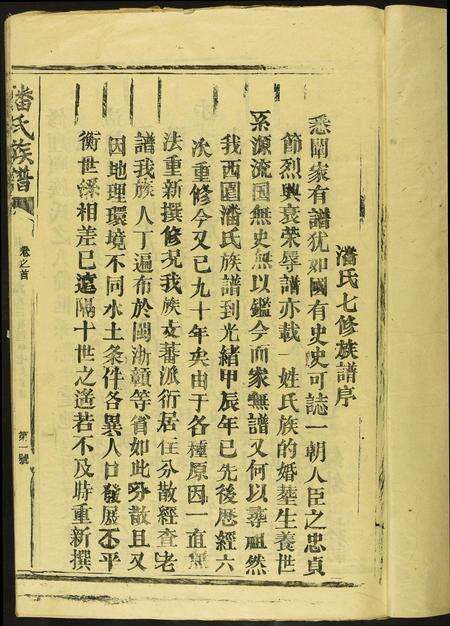 潘氏七修族譜序
悉聞家有譜犹如國有史史可誌一朝人臣之忠貞
節烈興衰荣辱譜亦載一姓氏族的婚塟生養世
系源流国無史無以鑑今而家無譜又何以尋祖然
我西園潘氏族譜到光緒甲辰年已先後歷經六
次重修今又已九十年矣由于各種原因一直無
法重新撰修况我族文蕃派衍居住分散經查老
譜我族人丁遍布於閩浙贛等省如此分散且又
因地理環境不同水土条件各異人口發展不平
衡世系相差已遠隔十世之遙若不及時重新撰
潘氏族譜
卷之首
第一號